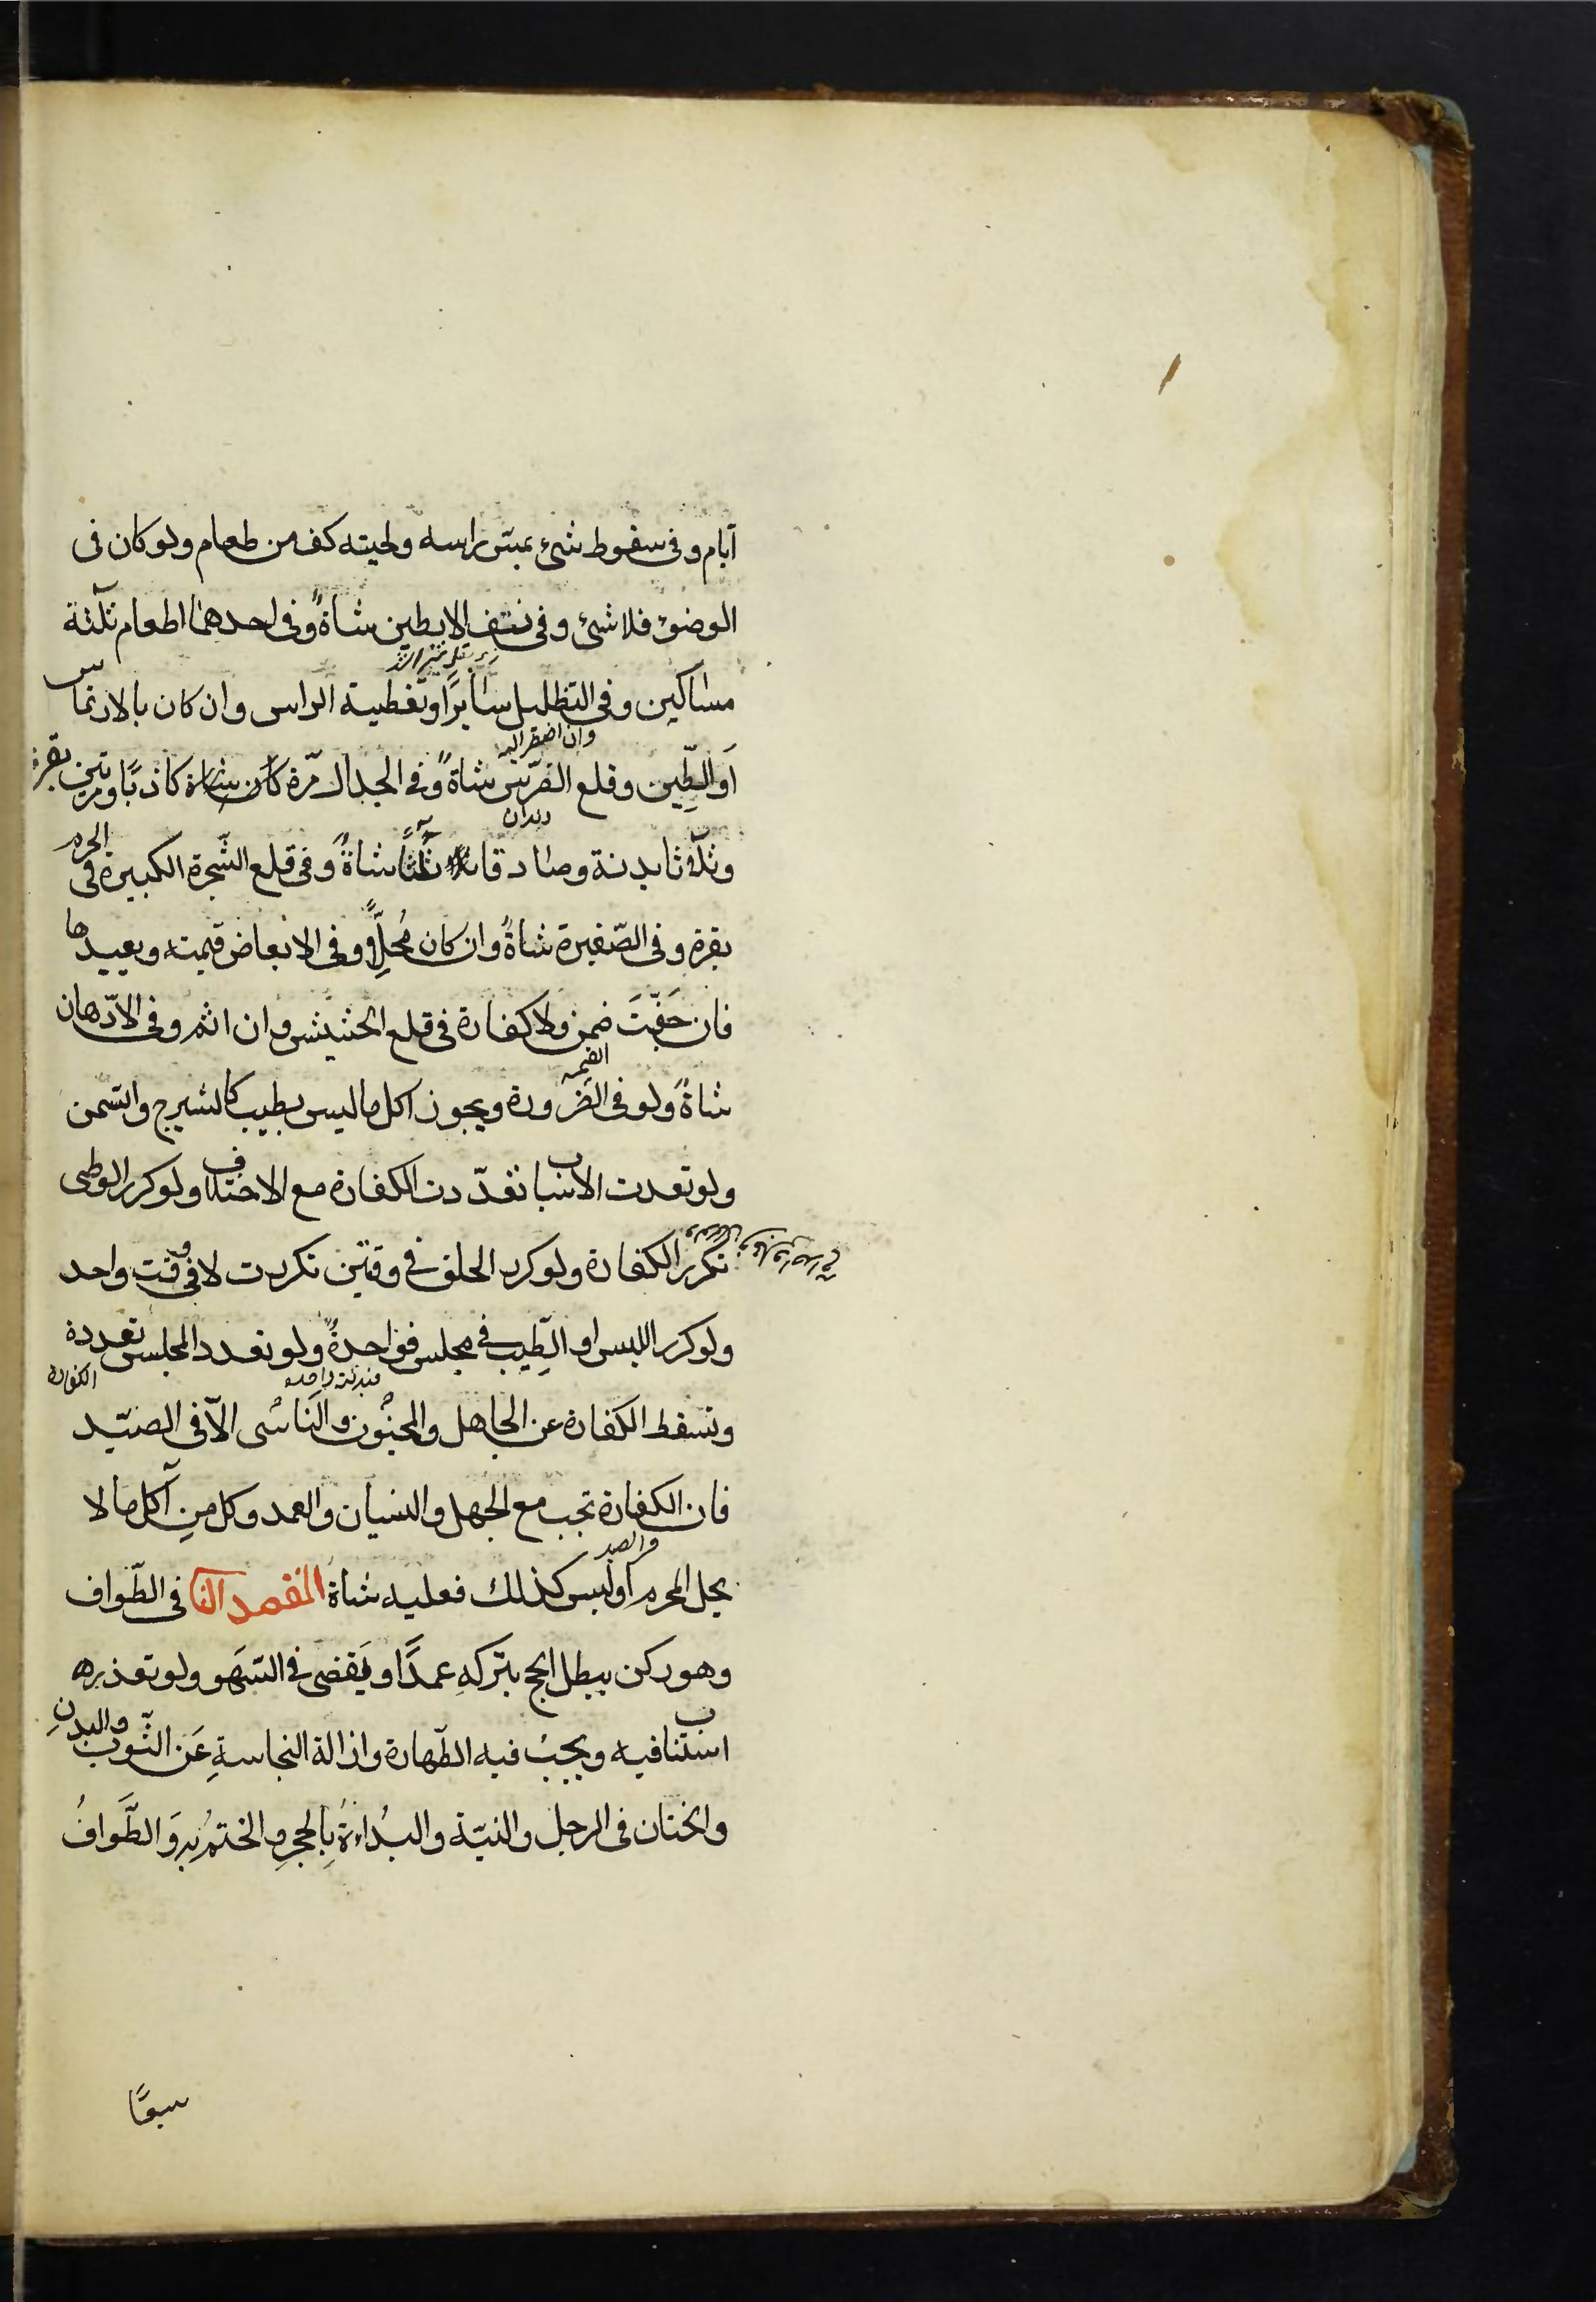 ايام و فى سقوط شئ بمسّ راسه ولحيته كف من طعام ولو كان فى
الوضوء فلا شئ و فى نتف الابطين شاةٌ و فى احدهما اطعام ثلثة
مساكين و فى التظليل سايرًا و تغطية الراس وان كان بالارتماس
وان اضطر اليه
او الطّين و قلع الضرس شاةٌ و فى الجدال مرّة كاذبًا شاة و مرتين بقرة
دندان
و ثلاثا بدنة و صادقا ثلثًا شاةٌ و فى قلع الشّجرة الكبيرة فى الحرم
بقرة و فى الصّغيرة شاةٌ وان كان مُحِلًّا و فى الابعاض قيمته و يعيدها
فان جَفّتَ ضمن ولا كفارة فى قلع الحشيش وان اثم و فى الادّهان
القيمه
شاةٌ ولو فى الضّرورة و يجوز اكل ما ليس بطيب كالشيرج والسّمن
ولو تعددت الاسباب تعدّدت الكفارة مع الاختلاف ولو كرر الوطى
تكرر الكفارة ولو كرر الحلق فى وقتين تكررت لا فى وقت واحد
ولو كرر اللبس او الطّيب فى مجلس فواحدةٌ ولو تعدد المجلس تعددة
الكفارة
وتسقط الكفارة عن الجاهل والمجنون والناسى الّا فى الصّيد
فان الكفارة تجب مع الجهل والنسيان والعمد وكل من اكل ما لا
يحل للمحرم او لبس كذلك فعليه شاة المقصد الثا فى الطّواف
وهو ركن يبطل الحج بتركهِ عمدًا و يَقضى فى السّهو ولو تعذره
استناب فيه و يجبُ فيه الطّهارة وازالة النجاسةِ عَن الثّوب والبدنِ
والختان فى الرجل والنيّة والبُداءةُ بِالحجرِ والختمُ بِه وَالطَّوافُ
سبعًا